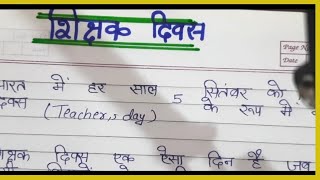 शिक्षक दिवस
Page No
Date
भारत में हर साल 5 सितंबर को
दिवस (Teacher,s day) के रूप में
शिक्षक दिवस एक ऐसा दिन है जब